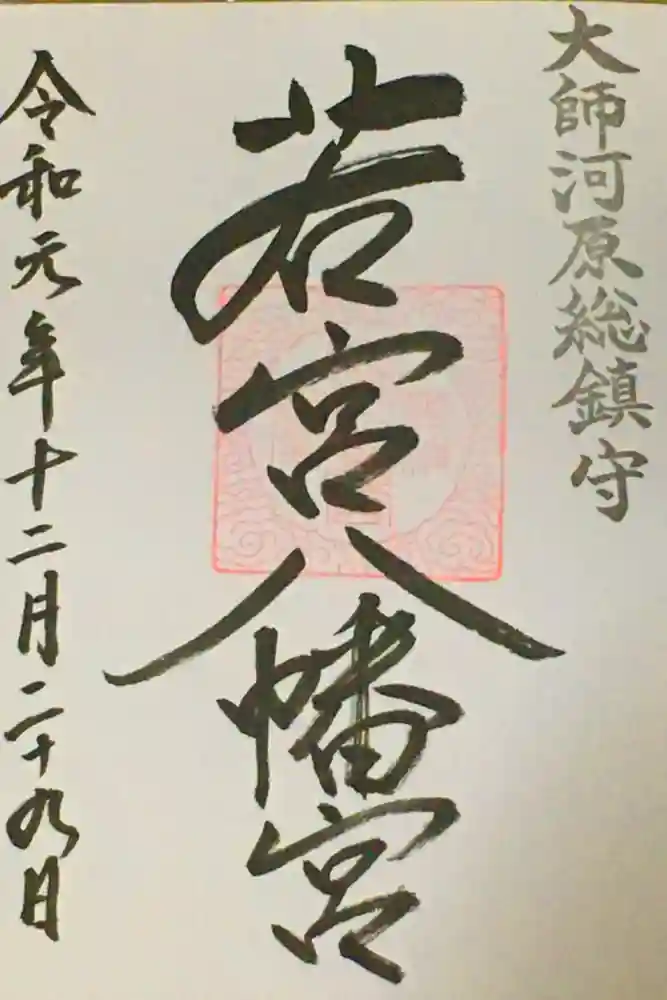 大師河原総鎮守
若宮八幡宮
令和元年十二月二十九日